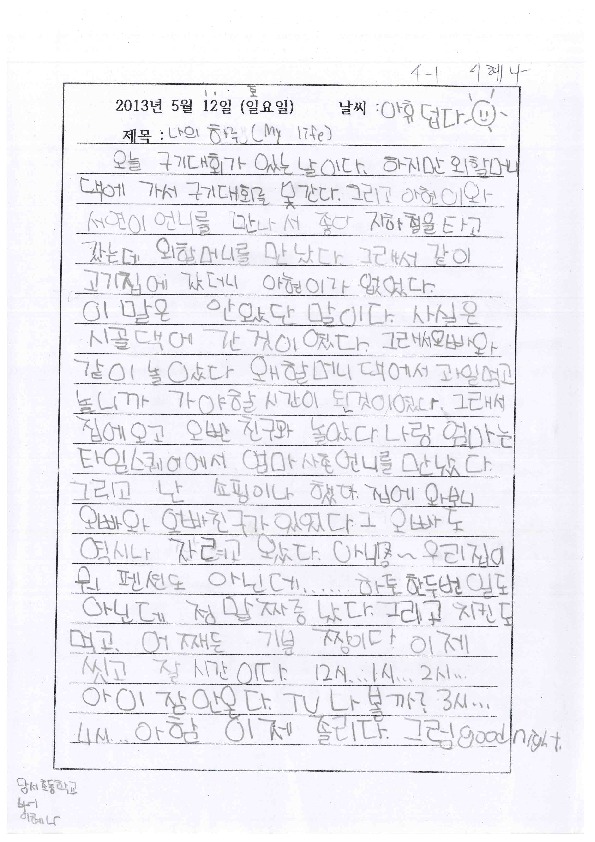 4-1 이혜나
2013년 5월 12일 (일요일) 날씨 : 아휴 덥다
제목 : 나의 하루 (My life)
오늘 구기대회가 있는 날이다. 하지만 외할머니
댁에 가서 구기대회를 못간다. 그리고 아현이와
서연이 언니를 만나서 좋다 지하철을 타고
갔는데 외할머니를 만났다. 그래서 같이
고기집에 갔더니 아현이가 없었다.
이 말은 안왔단 말이다. 사실은
시골댁에 간 것이였다. 그래서오빠와
같이 놀았다 왜할머니 댁에서 과일먹고
놀니까 가야할 시간이 된것이였다. 그래서
집에오고 오빤 친구와 놀았다 나랑 엄마는
타임스퀘어에서 엄마 사촌언니를 만났다.
그리고 난 쇼핑이나 했다. 집에 와보니
오빠와 오빠친구가 있었다 그 오빠도
역시나 자려고 왔다. 아니 ~ 우리집이
뭔 펜션도 아닌데...... 하토 하두번 일도
아닌데 정말 짜증 났다. 그리고 치킨도
먹고, 어째든 기분 짱이다 이제
씻고 잘 시간이다. 12시...1시... 2시...
아이 잠안온다. TV나 볼까? 3시...
4시...아함 이제 졸리다. 그럼 good night.
당서초등학교
이혜나